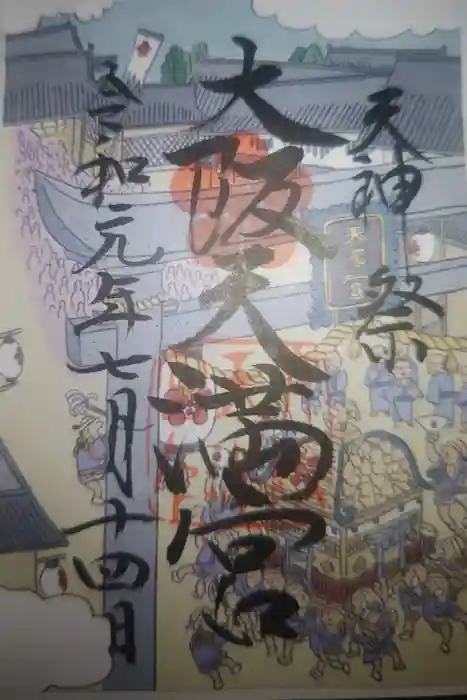 天神祭
大阪天満宮
令和元年七月十四日